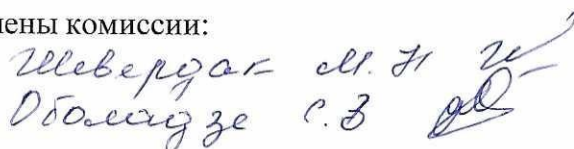 лены комиссии:
Шевердак М. Н
Оболадзе С. В